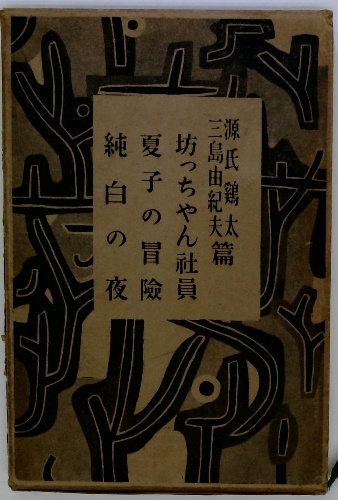 源氏鶏太
三島由紀夫
篇
坊っちゃん社員
夏子の冒險
純白の夜